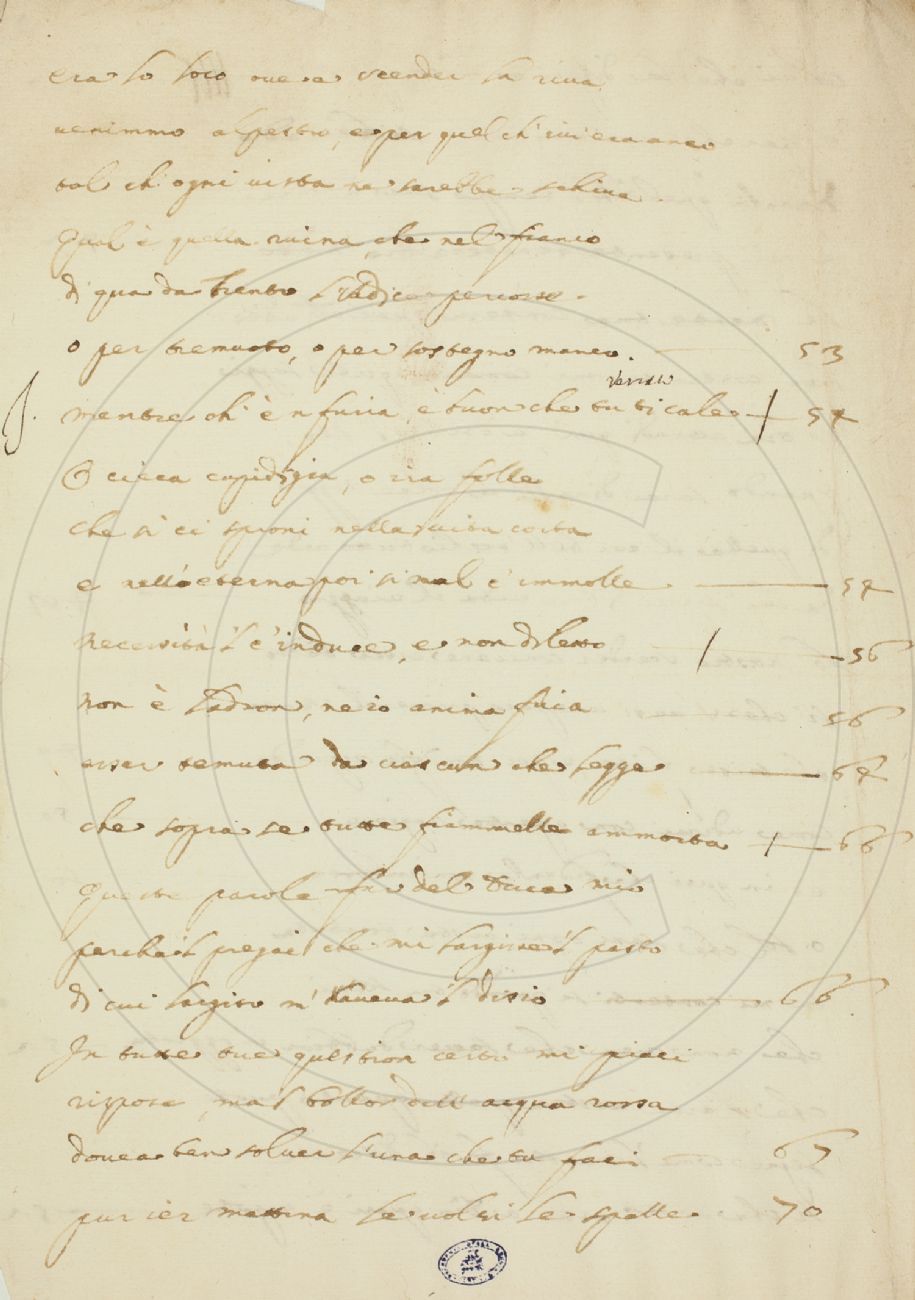 era lo loco ove a scender la riva
venimmo alpestro, e per quel ch'ivi era anco
tal ch'ogni vista ne sarebbe schiva.
Qual è quella ruina, che nel fianco
di qua da Trento l'Adice percosse.
o per tremuoto, o per sostegno manco. 53
mentre ch'è n furia, è buon che tu ti cale 54
O cieca cupidigia, o ria folle
che si ci sproni nella vita corta
e nell'eterna poi si mal c'immolle 54
Necessità 'l c'induce, e non diletto 56
Non è ladron, ne io anima fuia 56
esser temuta da ciascun che legge 64
che sopra se tutte fiammelle ammorta 66
Queste parole fur del Duca mio
perche il pregai che mi largisse 'l pasto
di cui largito m'haveva 'l disio 66
In tutte tue question certo mi piaci
rispose, ma 'l bollor dell'acqua rossa
dovea ben solver l'una che tu faci 67
pur ier mattina le volsi le spalle. 70